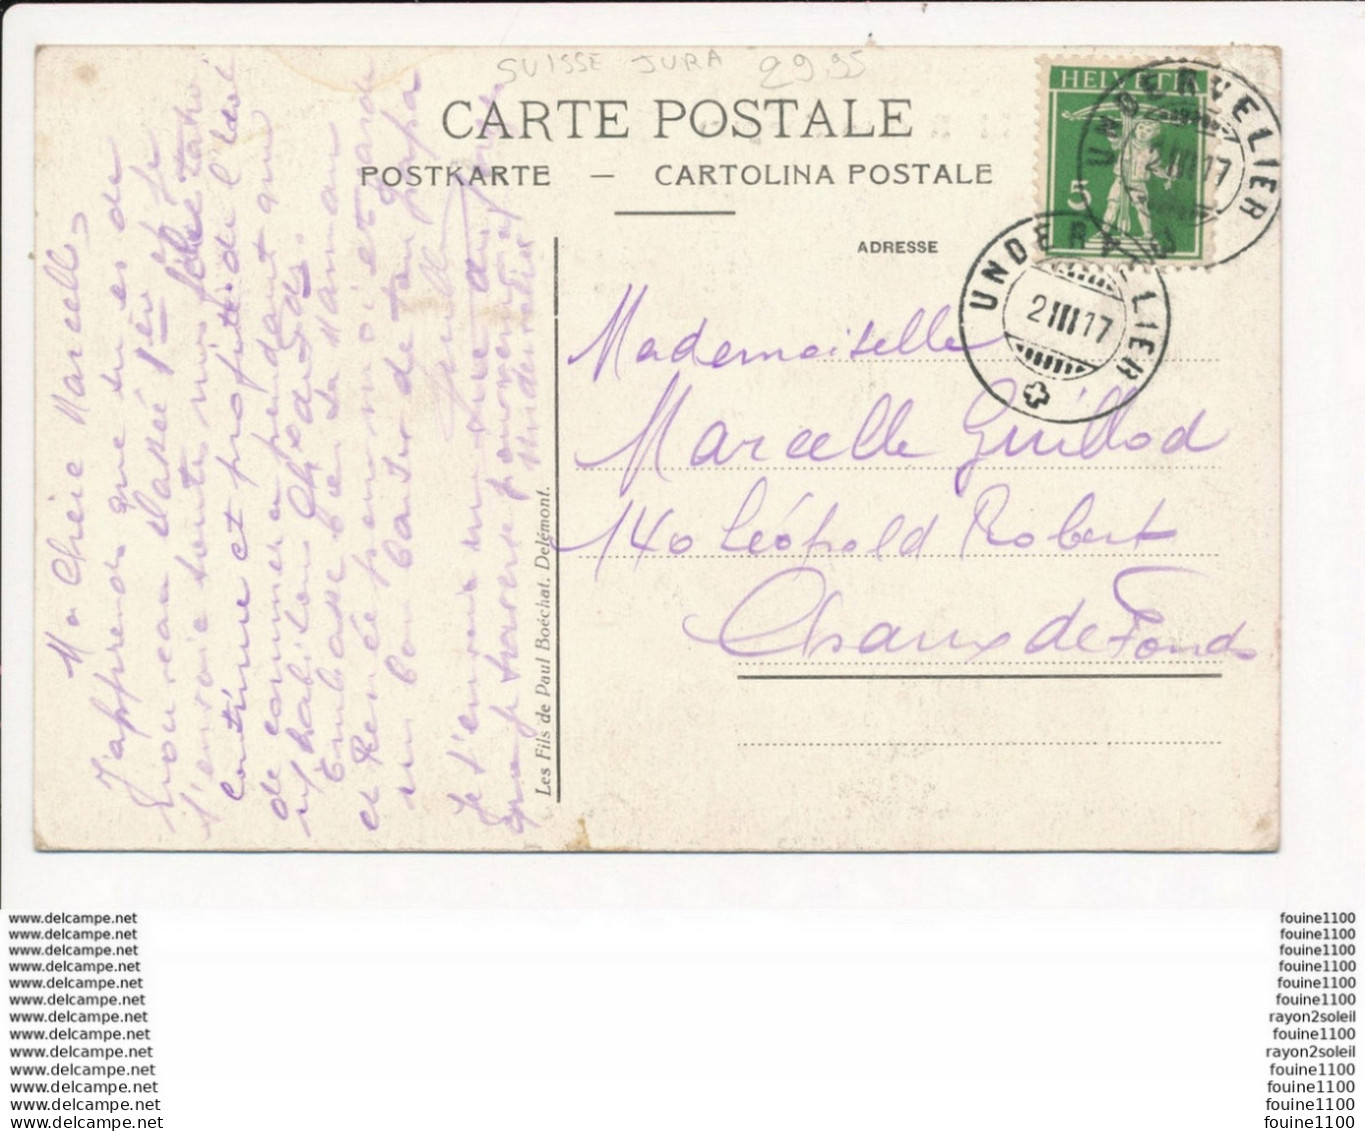 SUISSE JURA 29.95
CARTE POSTALE
POSTKARTE — CARTOLINA POSTALE
ADRESSE
HELVETIA
5
UNDERVELIER
2 III 17
UNDERVELIER
2 III 17
Mademoiselle
Marcelle Guillod
140 Léopold Robert
Chaux de Fonds
Les Fils de Paul Boéchat, Delémont.
Ma Chère Marcelle,
J'apprends que tu es de
nouveau classée 1ère Je
t'envoie toutes mes félicitations
continue et profite de l'idéal
de commerce pendant que
tu habites Chx de Fds.
Embrasse bien ta Maman
et Renée pour moi et garde
un bon baiser de ton papa
Je t'envoie une vue du
que je traverse pour venir
Undervelier
www.delcampe.net
www.delcampe.net
www.delcampe.net
www.delcampe.net
www.delcampe.net
www.delcampe.net
www.delcampe.net
www.delcampe.net
www.delcampe.net
www.delcampe.net
www.delcampe.net
www.delcampe.net
www.delcampe.net
fouine1100
fouine1100
fouine1100
fouine1100
fouine1100
fouine1100
rayon2soleil
fouine1100
rayon2soleil
fouine1100
fouine1100
fouine1100
fouine1100